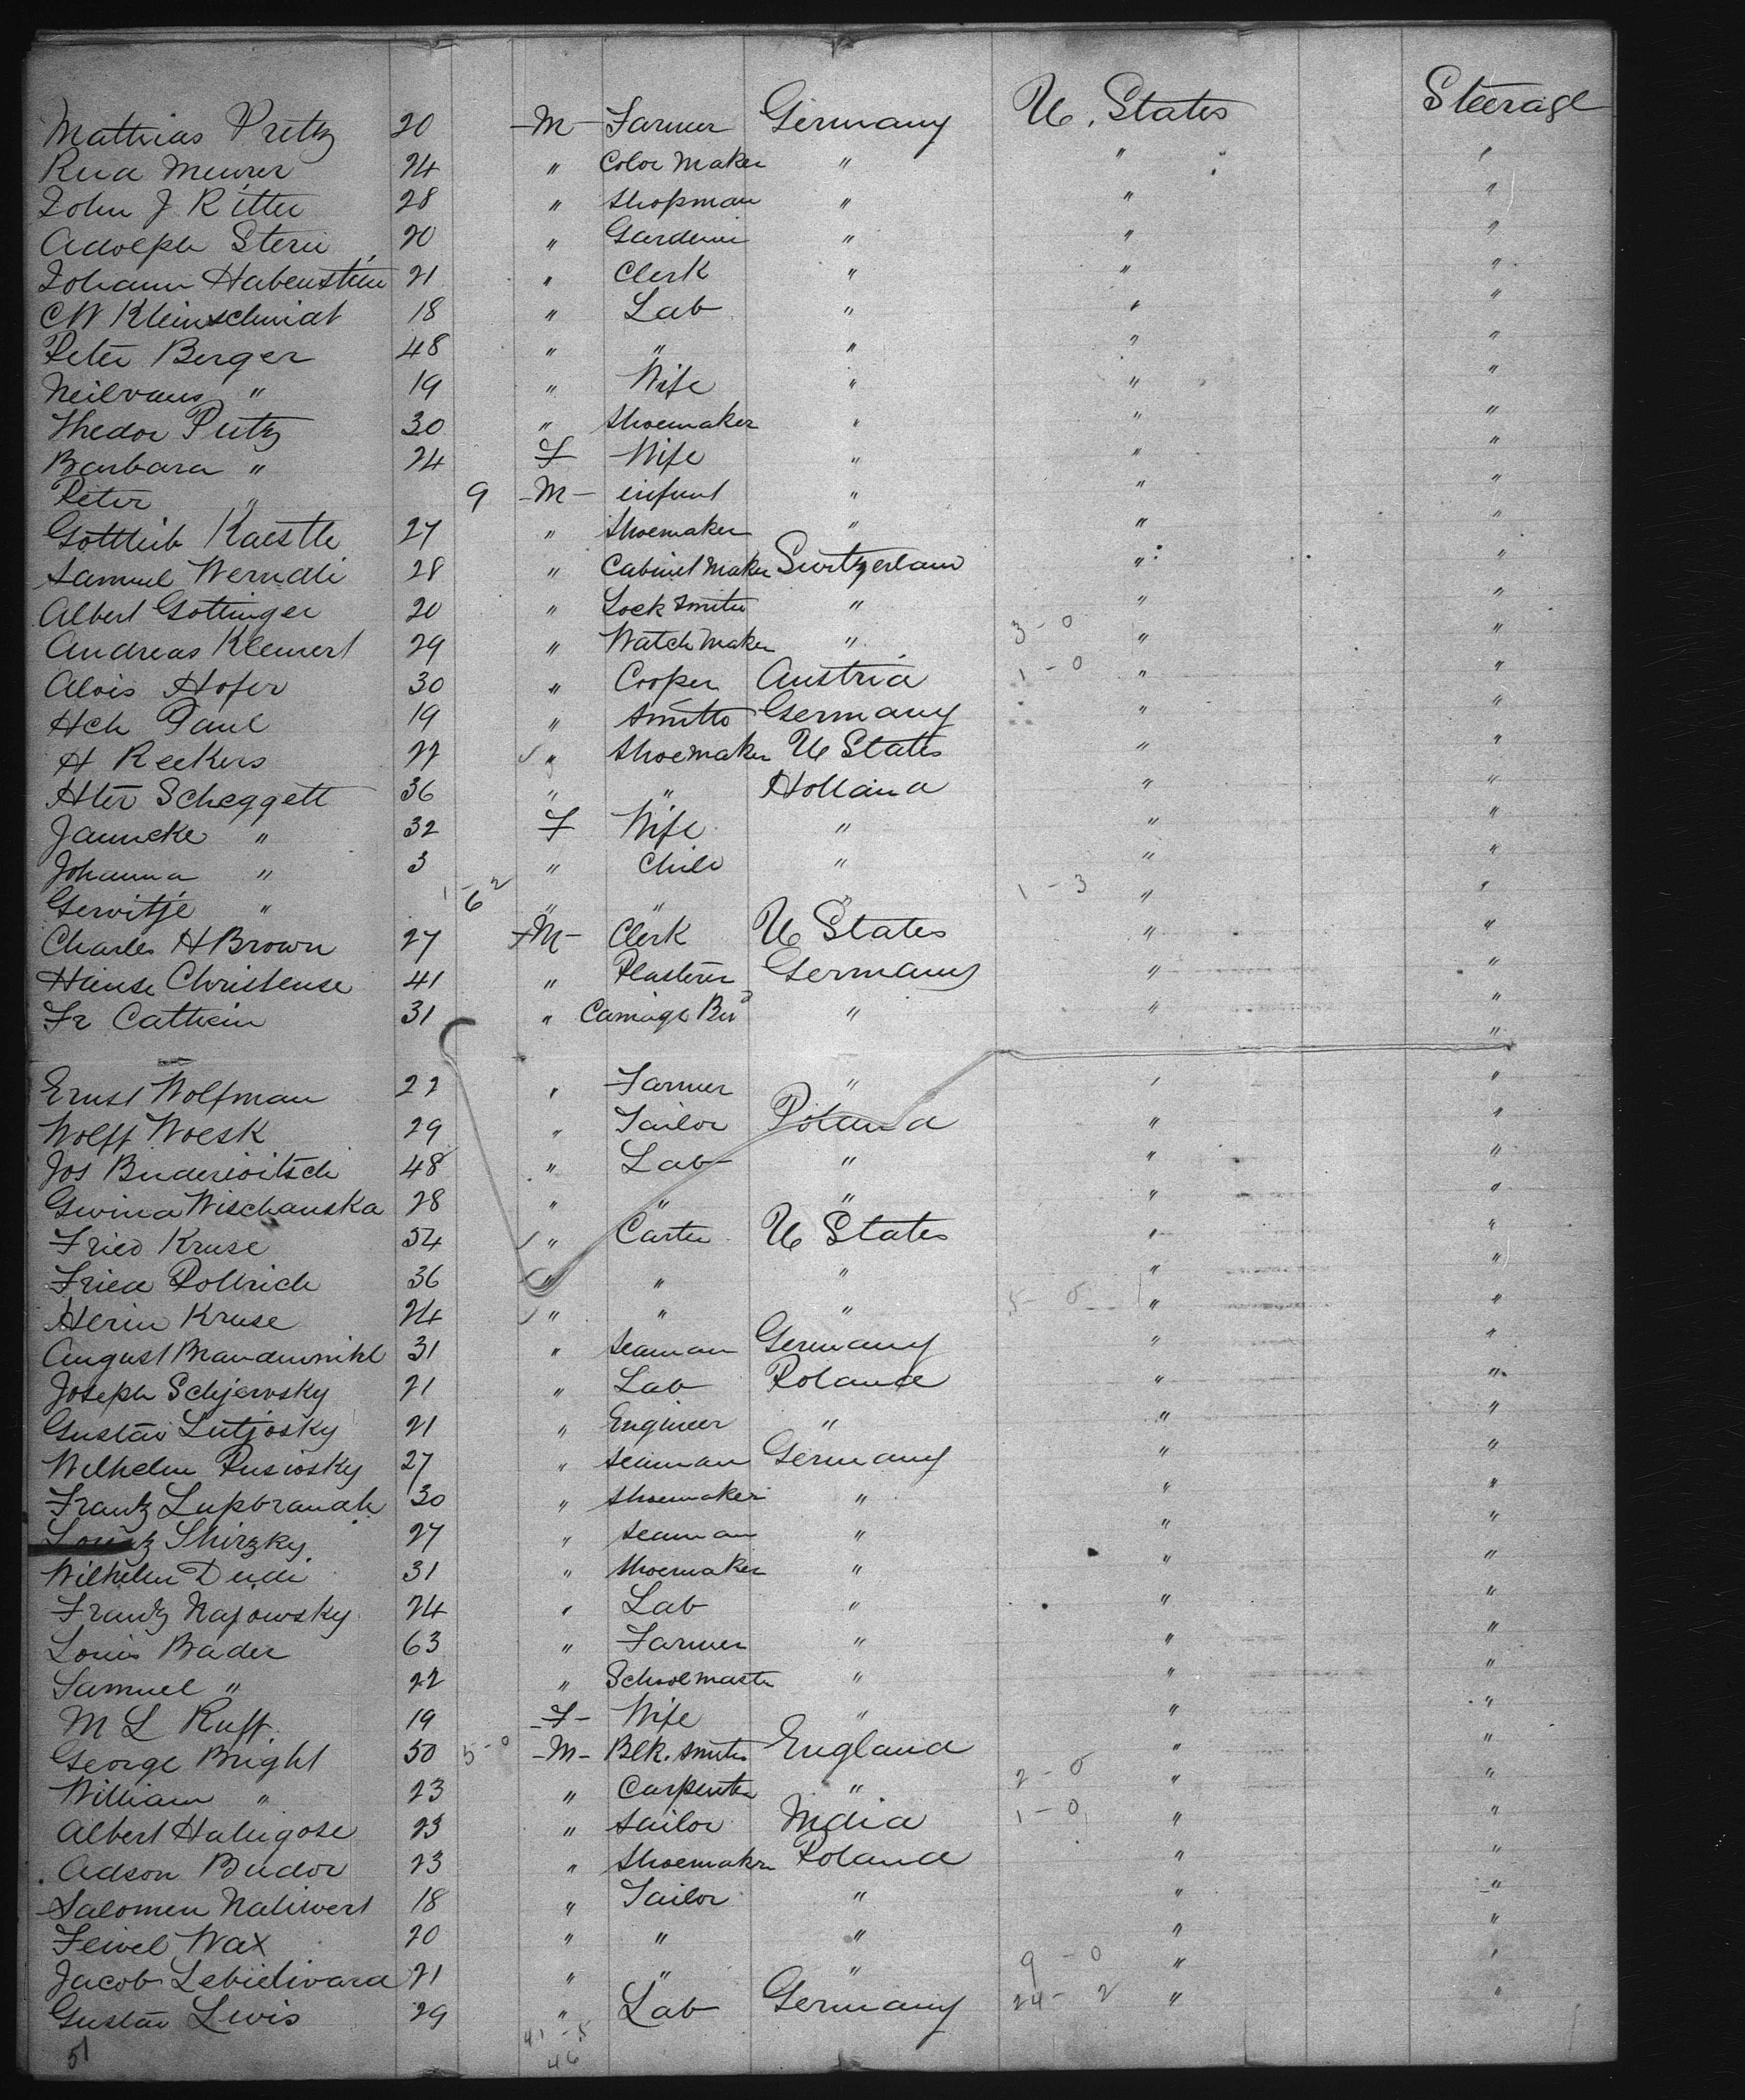 Mathias Putz 20 M Farmer Germany U. States Steerage
Rud Meurer 24 " Color Maker " " "
John J Ritter 28 " Shopman " " "
Adolph Stern 20 " Gardener " " "
Johann Habenstein 21 " Clerk " " "
CW Kleinschmidt 18 " Lab " " "
Peter Berger 48 " " " " "
" 19 " Wife " " "
Thedor Putz 30 " Shoemaker " " "
Barbara " 24 F Wife " " "
Peter " 9 M infant " " "
Gottlieb Kaestle 27 " Shoemaker " " "
Samuel Werndli 28 " Cabinet Maker Switzerland " "
Albert Gottinger 20 " Lock Smith " " "
Andreas Klemert 29 " Watch Maker " 3-0 " "
Alois Hofer 30 " Cooper Austria 1-0 " "
Hch Paul 19 " Smith Germany " "
H Reekers 22 " Shoemaker U States " "
Scheggett 36 " " Holland " "
Janneke " 32 F Wife " " "
Johanna " 3 " Child " " "
Gerritje " 1-2 6 " " " 1-3 " "
Charles H Brown 27 M Clerk U States " "
Christense 41 " Plasterer Germany " "
Fr Cathein 31 " Carriage Br " " "
"
Ernst Wolfman 22 " Farmer " " "
Wolff Woesk 29 " Tailor Poland " "
Jos 48 " Lab " " "
Wischanska 28 " " " " "
Fried Kruse 54 " Carter U States " "
Fried Pollrich 36 " " " " "
Herm Kruse 24 " " " 5-0 " "
August 31 " Seaman Germany " "
Joseph Schjewsky 21 " Lab Poland " "
Gustav Lutjosky 21 " Engineer " " "
Wilhelm Rusiosky 27 " Seaman Germany " "
Frantz Lupbrandt 30 " Shoemaker " " "
Shirzky 27 " Seaman " " "
Wilhelm 31 " Shoemaker " " "
Frantz Najowsky 24 " Lab " " "
Louis Bader 63 " Farmer " " "
Samuel " 22 " School master " " "
M L Ruff 19 F Wife " " "
George Bright 50 5-0 M Blk. Smith England " "
William " 23 " Carpenter " 2-0 " "
Albert 23 " Sailor India 1-0 " "
Adson Budor 23 " Shoemaker Poland " "
Salomen Naliwert 18 " Tailor " " "
Feivel Wax 20 " " " " "
Jacob 21 " " " 9-0 " "
Gustav Lewis 29 " Lab Germany 24-2 " "
51 41-5
46